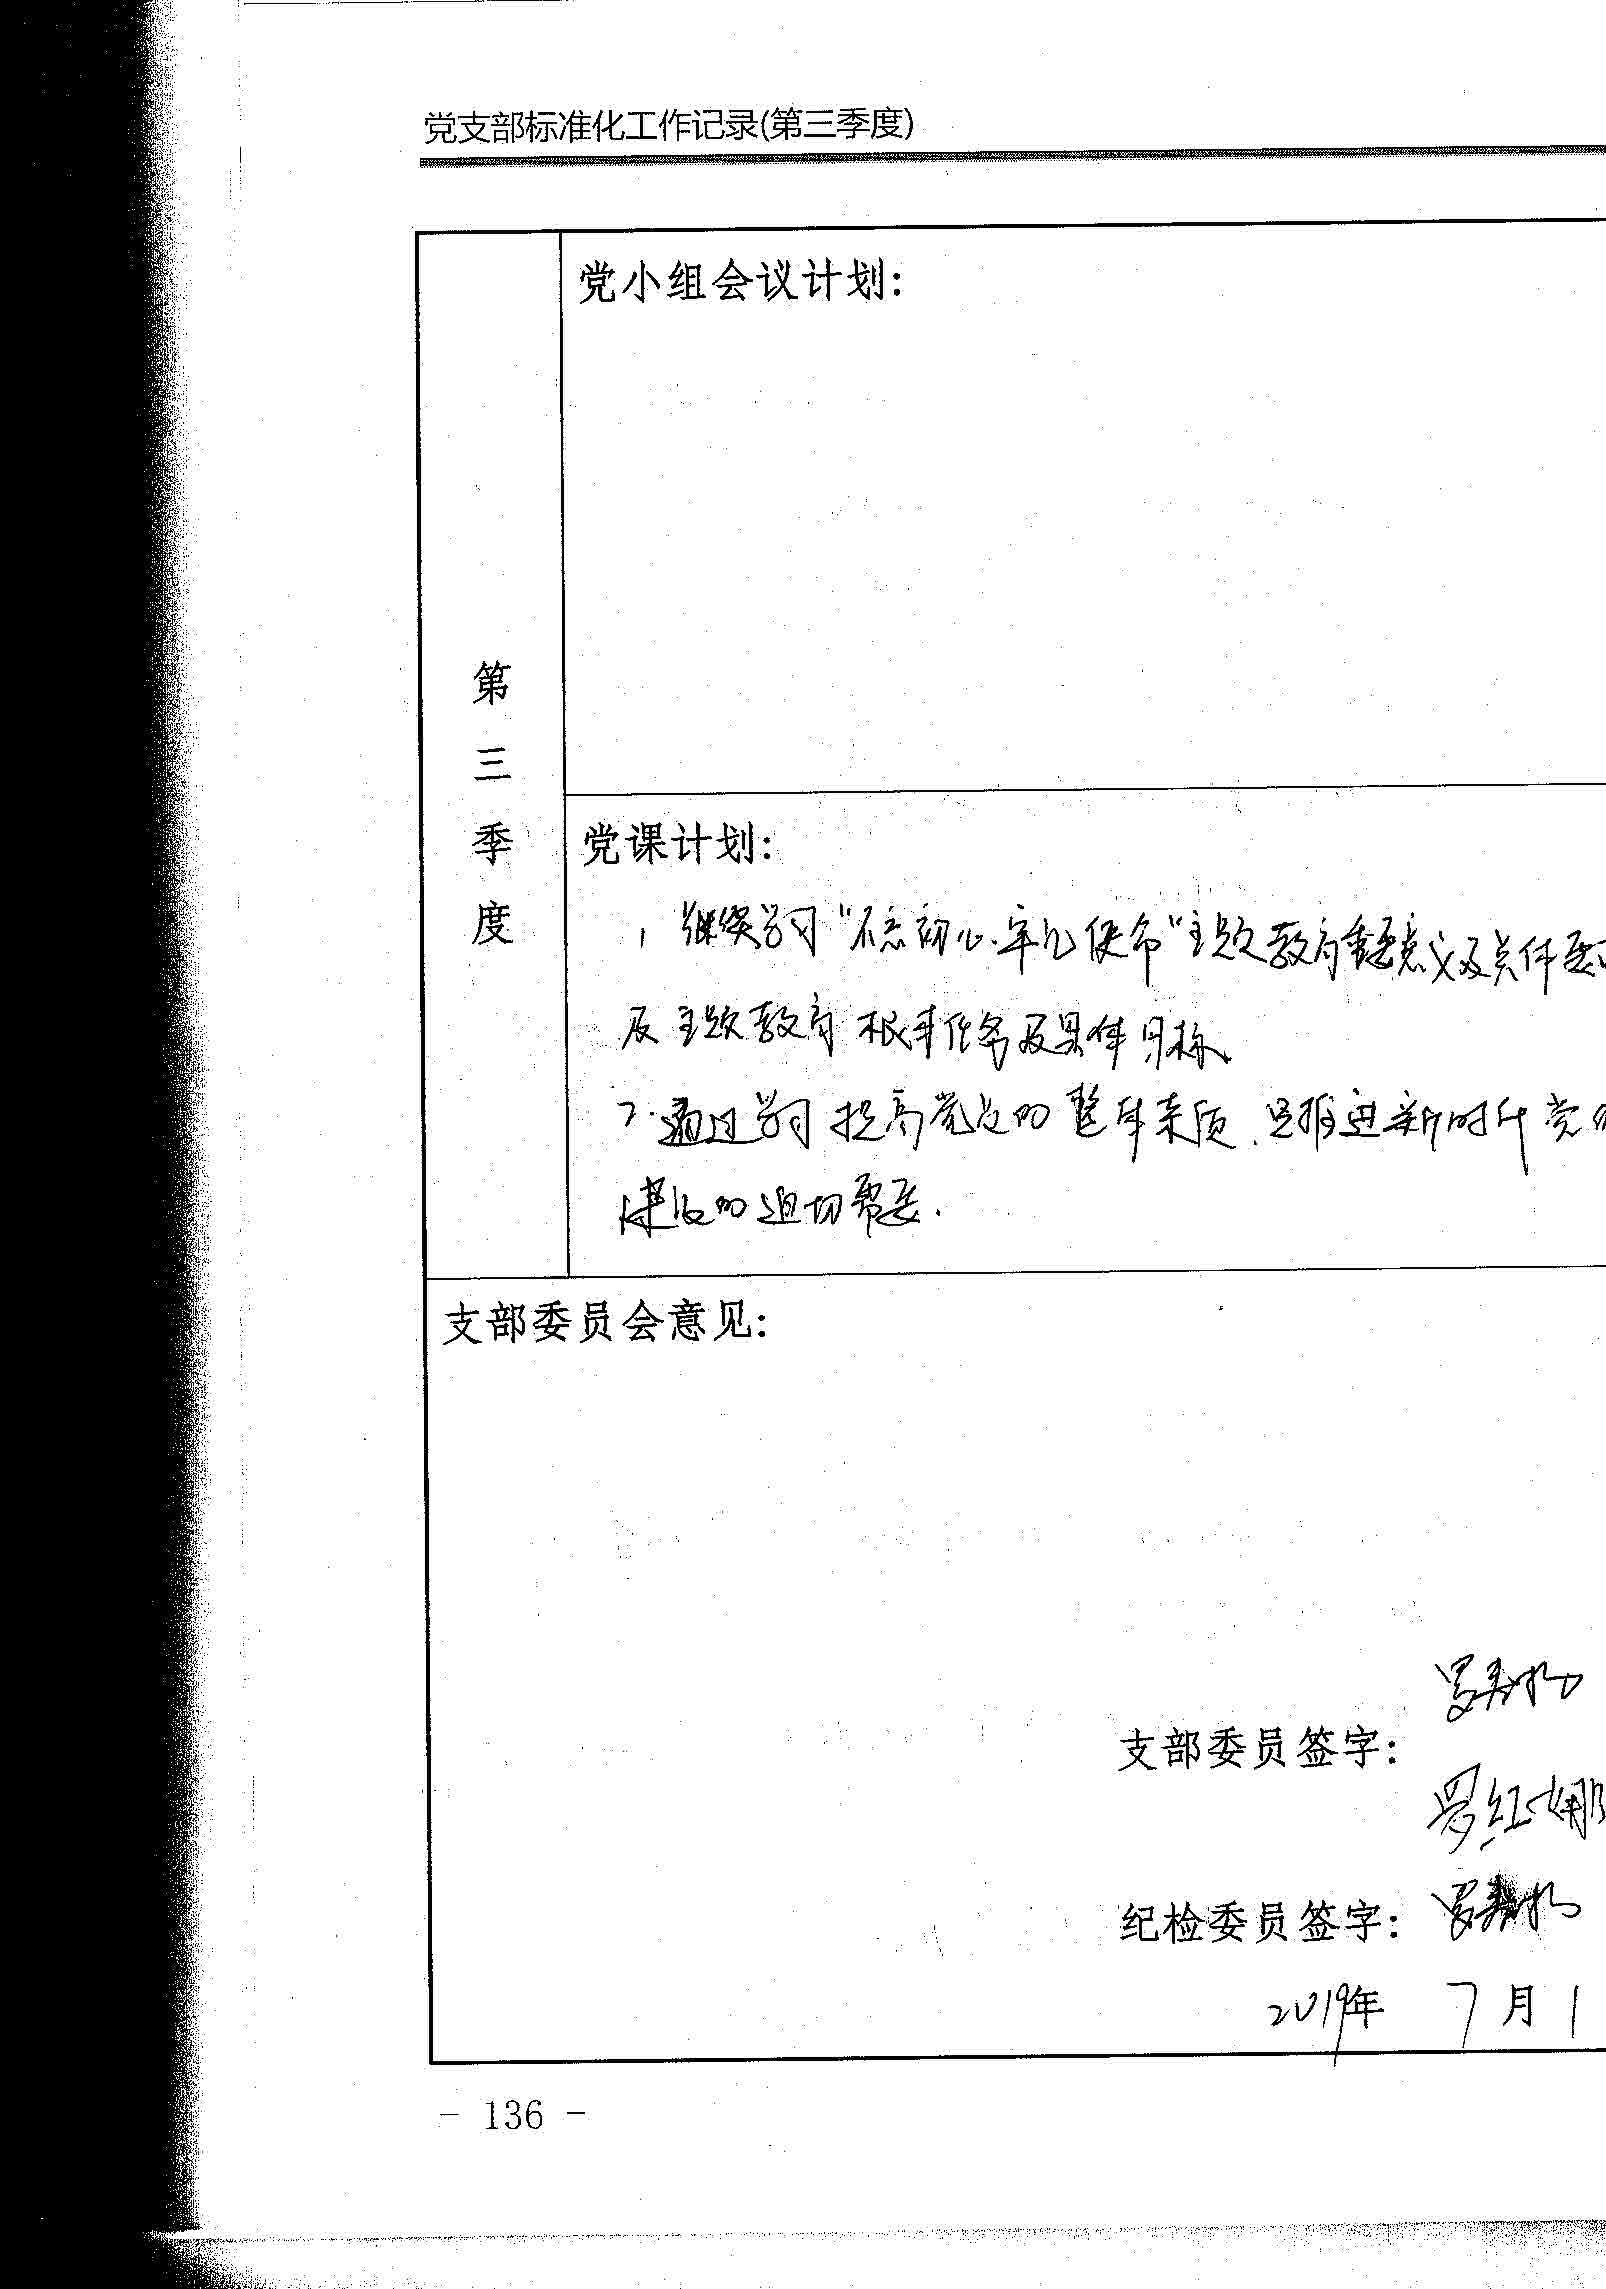 党支部标准化工作记录(第三季度)
党小组会议计划:
第
三
季
度
党课计划:
1, 继续学习"不忘初心.牢记使命"主题教育重要意义及总体要
及主题教育根本任务及具体目标、
2.通过学习提高党员的整体素质、是推进新时代党的
建设的迫切需要.
支部委员会意见:
支部委员签字:
罗红娜
纪检委员签字:
2019年 7月1
- 136 -